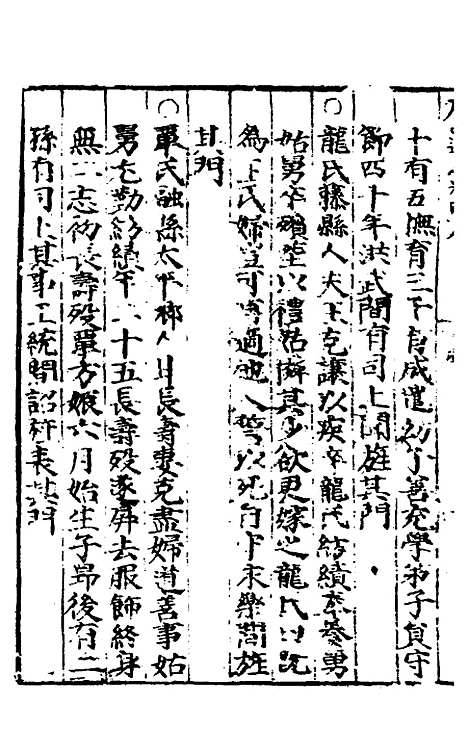 十有五撫育三子有成遣幼子善充學弟子員守
節四十年洪武間有司上聞旌其門
○龍氏藤縣人夫王克讓以疾卒龍氏紡績奉養舅
姑舅卒殯塟以禮姑憐其少欲更嫁之龍氏曰既
為王氏婦豈可再適他人誓以死自卜永樂間旌
其門
○覃氏融縣太平鄉人甘長壽妻克盡婦道善事姑
舅尤勤紡績年二十五長壽歿遂屏去服飾終身
無二志初長壽歿覃方娠六月始生子昂後有二
孫有司上其事正統間詔旌表其門